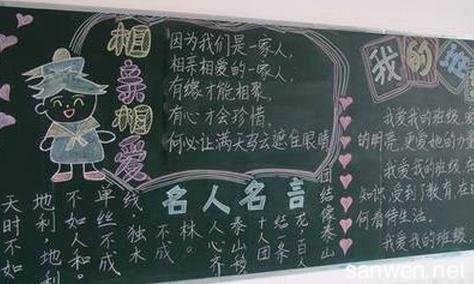 相亲相爱
因为我们是一家人，
相亲相爱的一家人，
有缘才能相聚，
有心才会珍惜，
何必让满天乌云遮住眼睛
名人名言
天时不如
地利，地利
不如人和。
单丝不成
线，独木
不成
林。
人心齐
泰山移
十人团
结条
龙，百人
团结泰山
我的班
我爱我的班级，
的明亮，更爱她的力
我爱我的班级
知识，受到了教育
何看待生活。
我爱我的班级
sanwen.net